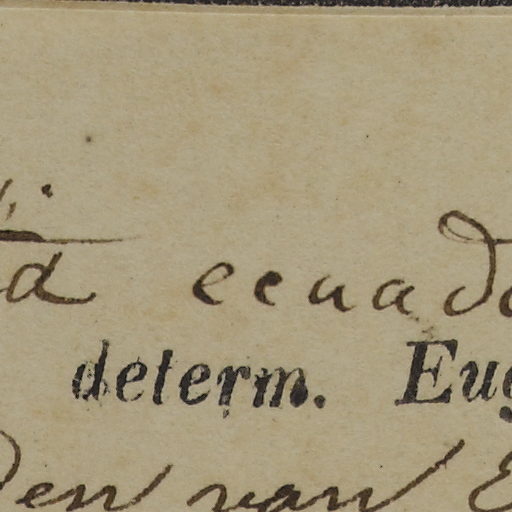 ecuad
determ. Eug
den van E